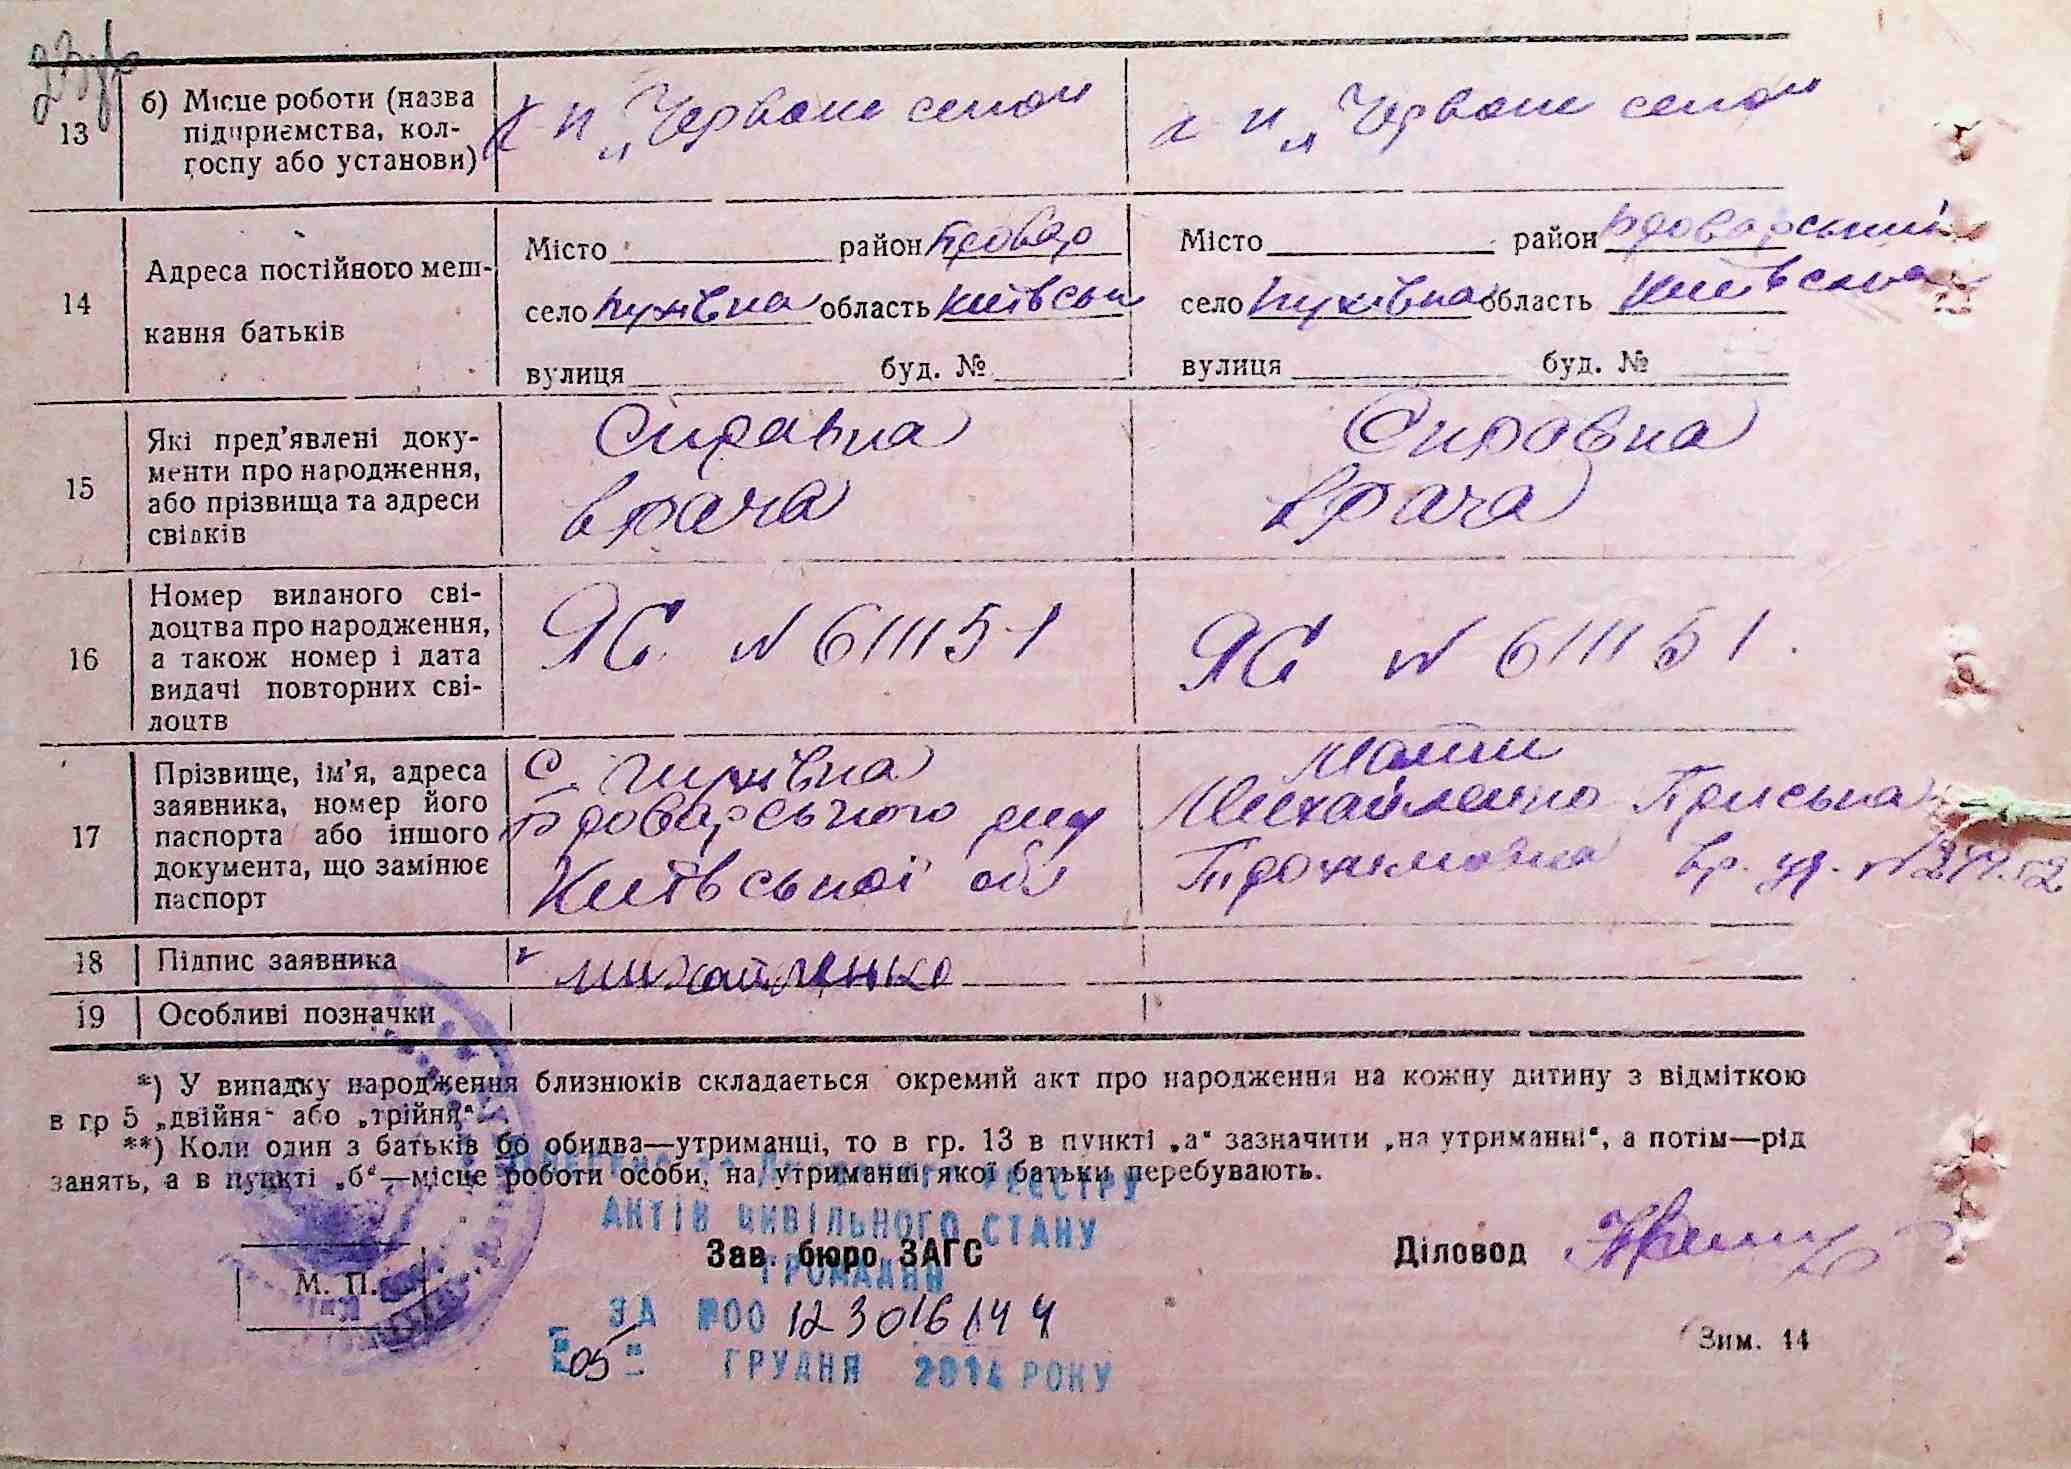 13
б) Місце роботи (назва підприємства, колгоспу або установи)
к-п „Червоне село"
к-п „Червоне село"
14
Адреса постійного мешкання батьків
Місто район Бровар
село Пухівка область Київськ
вулиця буд. №
Місто район Броварський
село Пухівка область Київська
вулиця буд. №
15
Які пред'явлені документи про народження, або прізвища та адреси свідків
Справка
врача
Справка
врача
16
Номер виданого свідоцтва про народження, а також номер і дата видачі повторних свідоцтв
ЯС N 611151
ЯС N 611151.
17
Прізвище, ім'я, адреса заявника, номер його паспорта або іншого документа, що замінює паспорт
С. Пухівка
Броварського р-ну
Київської обл
Мати
Михайленко Приська
Трохимовна вр. уд. N
18
Підпис заявника
Михайленко
19
Особливі позначки
*) У випадку народження близнюків складається окремий акт про народження на кожну дитину з відміткою
в гр 5 „двійня" або „трійня".
**) Коли один з батьків бо обидва—утриманці, то в гр. 13 в пункті „а" зазначити „на утриманні", а потім—рід
занять, а в пункті „б"—місце роботи особи, на утриманні якої батьки перебувають.
РЕЄСТРУ
АКТІВ ЦИВІЛЬНОГО СТАНУ
Зав. бюро ЗАГС
Діловод
ГРОМАДЯН
М. П.
ЗА №00 123016144
"05" ГРУДНЯ 2014 РОКУ
Зим. 14